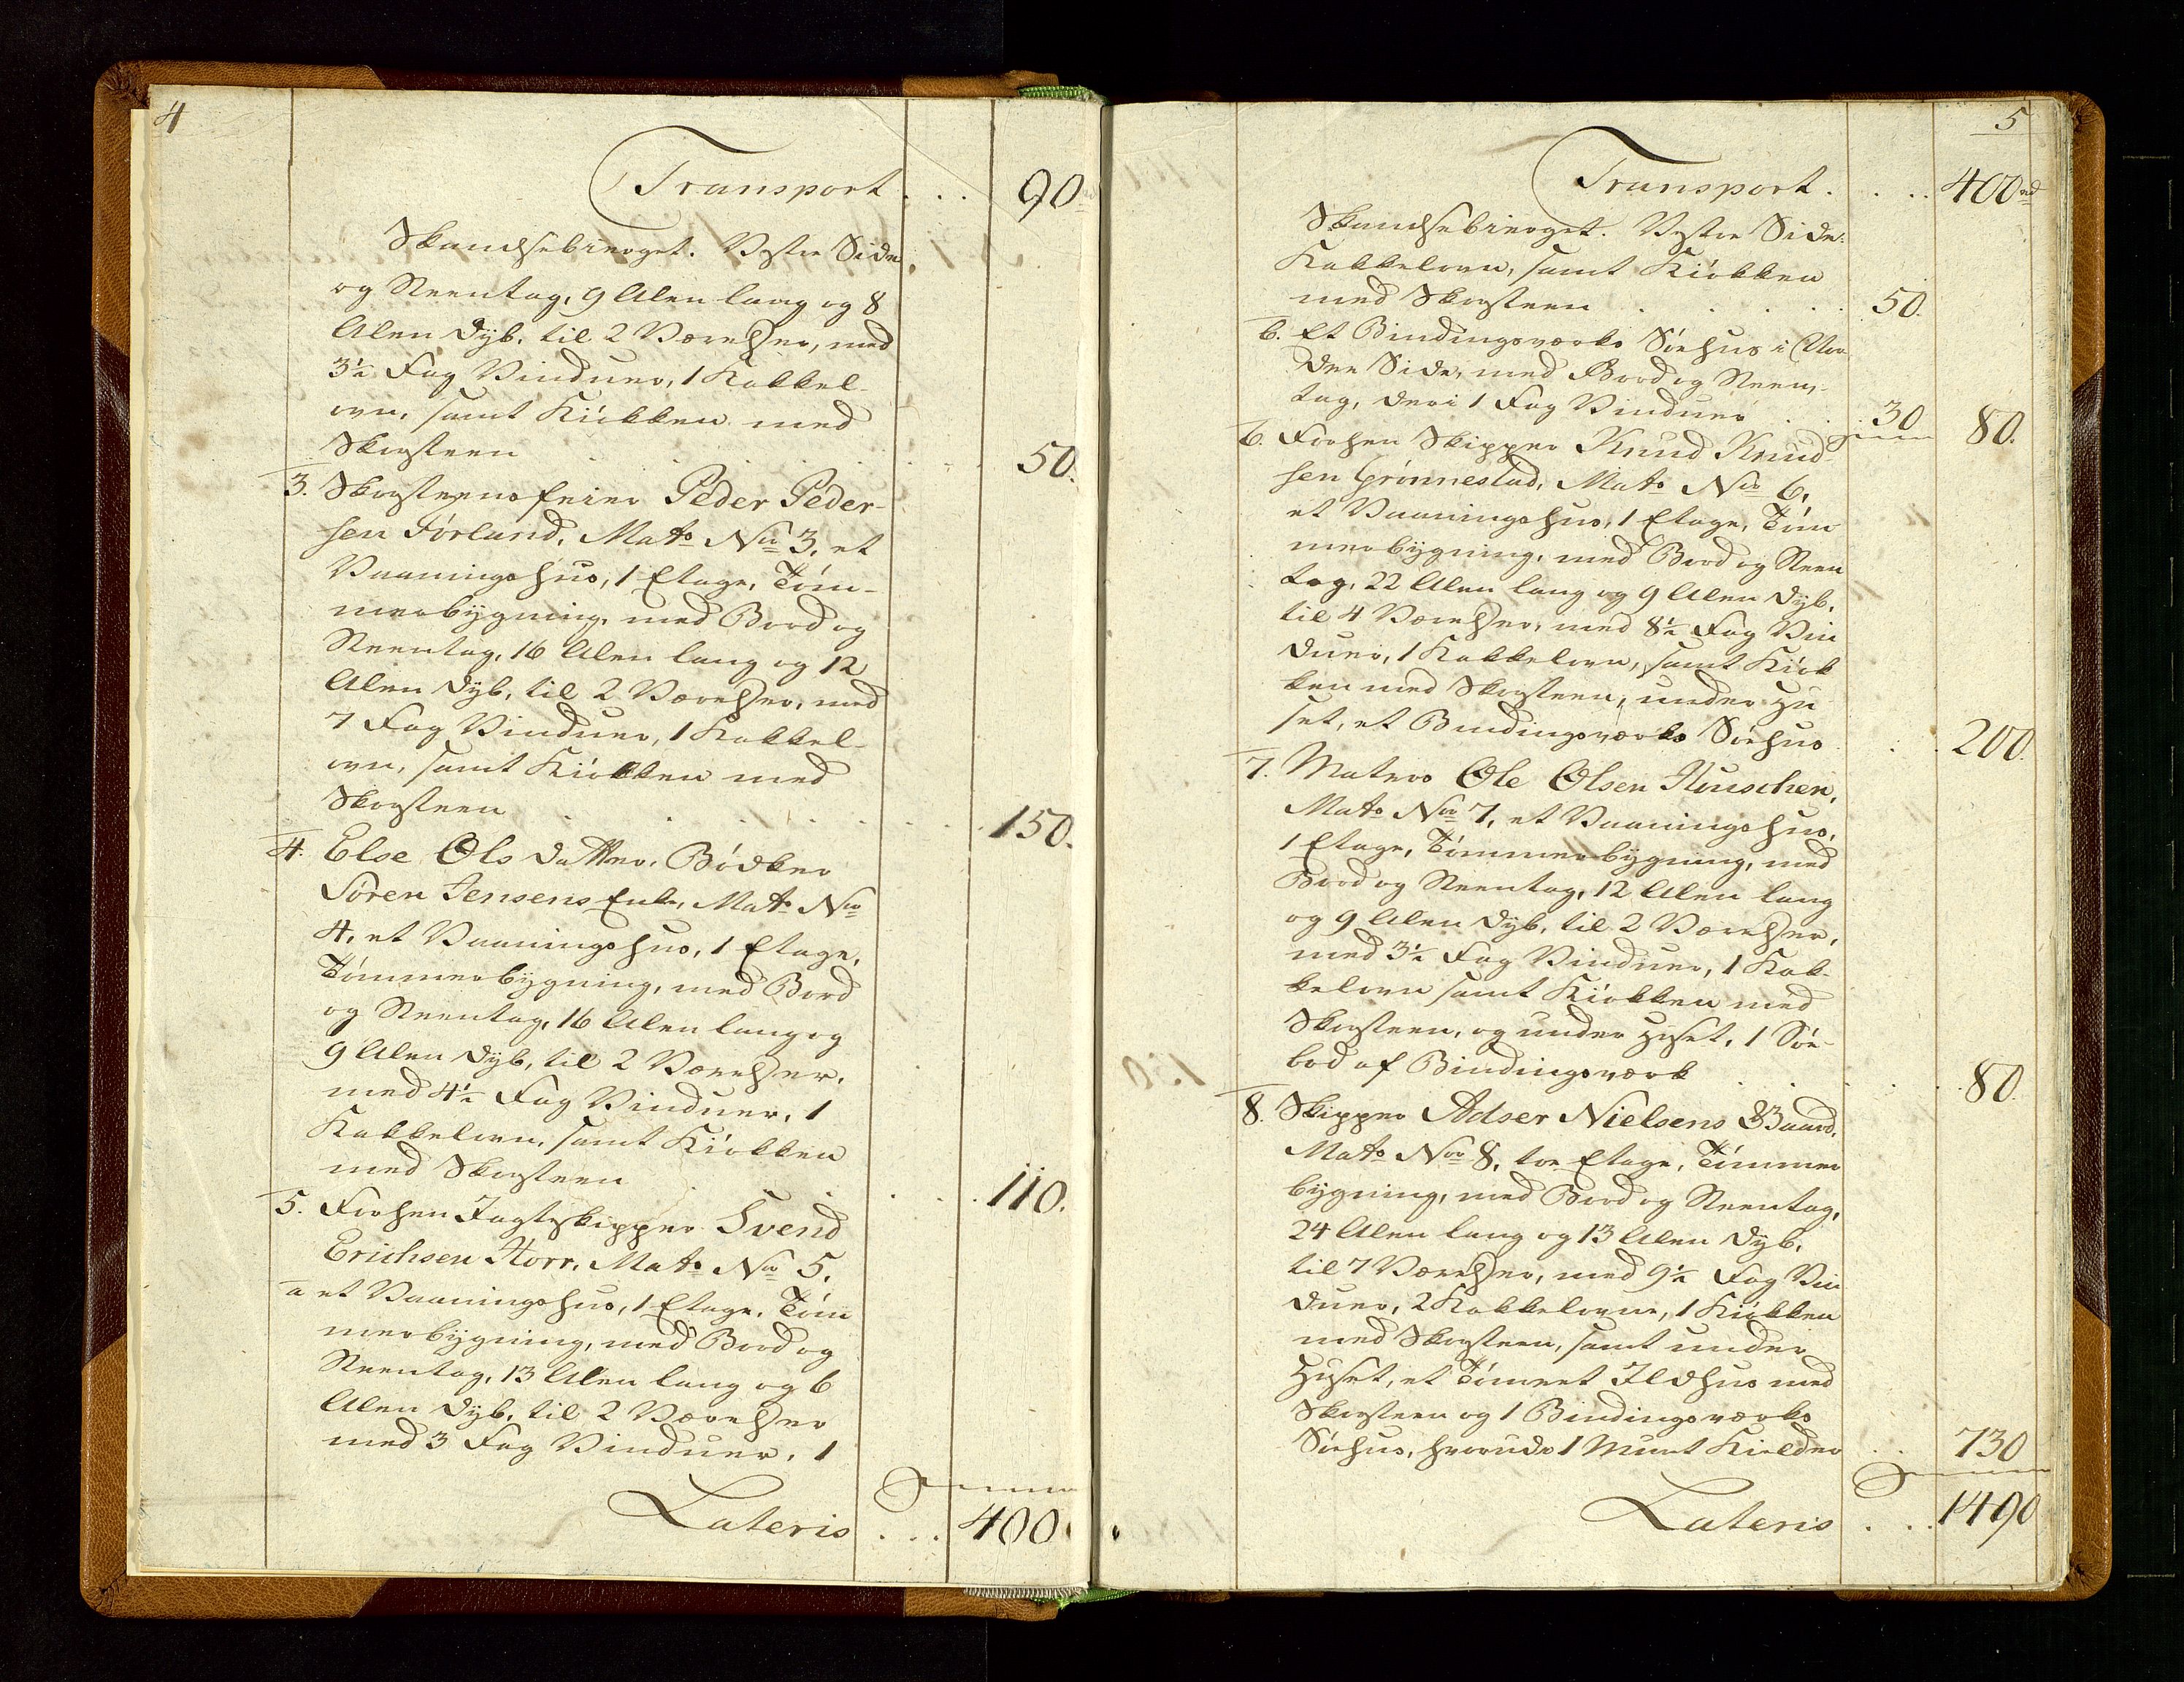 4
Transport . . . 90
Skandsebierget. Vestre Side
og Steentag, 9 Alen lang og 8
Alen dyb, til 2 Værelser, med
3½ Fag Vinduer, 1 Kakkel-
ovn, samt Kiökken med
Skorsteen . . . 50.
3. Skorsteensfeier Peder Peder-
sen Förland, Mats No 3, et
Vaaningshus, 1 Etage, Töm-
merbygning, med Bord og
Steentag, 16 Alen lang og 12
Alen dyb, til 2 Værelser, med
7 Fag Vinduer, 1 Kakkel-
ovn, samt Kiökken med
Skorsteen . . . 150.
4. Else Ols datter, Bödker
Sören Jensens Enke, Mats No
4, et Vaaningshus, 1 Etage,
Tömmerbygning, med Bord
og Steentag, 16 Alen lang og
9 Alen dyb, til 2 Værelser,
med 4½ Fag Vinduer, 1
Kakkelovn, samt Kiökken
med Skorsteen . . . 110.
5. Forhen Jagtskipper Svend
Erichsen Horr, Mats No 5,
a et Vaaningshus, 1 Etage, Töm
merbygning, med Bord og
Steentag, 13 Alen lang og 6
Alen dyb, til 2 Værelser
med 3 Fag Vinduer, 1
Lateris . . . 400
5
Transport . . . 400 rd
Skandsebierget. Vestre Side.
Kakkelovn, samt Kiökken
med Skorsteen . . . 50.
b. Et Bindingsværks Söehus i Nor
dre Side, med Bord og Steen-
tag, deri 1 Fag Vinduer . . . 30 80.
6. Forhen Skipper Knud Knud
sen Grönnestad, Mats No 6,
et Vaaningshus, 1 Etage, Töm
merbygning, med Bord og Steen
tag, 22 Alen lang og 9 Alen dyb,
til 4 Værelser, med 8½ Fag Vin
duer, 1 Kakkelovn, samt Kiök
ken med Skorsteen, under Hu
set, et Bindingsværks Söehus . . . 200.
7. Matros Ole Olsen
Mats No 7, et Vaaningshus,
1 Etage, Tömmerbygning, med
Bord og Steentag, 12 Alen lang
og 9 Alen dyb, til 2 Værelser,
med 3½ Fag Vinduer, 1 Kak-
kelovn samt Kiökken med
Skorsteen, og under Huset, 1 Söe-
bod af Bindingsværk . . . 80.
8. Skipper Adser Nielsens Gaard,
Mats No 8, toe Etage, Tömmer
bygning, med Bord og Steentag,
24 Alen lang og 13 Alen dyb,
til 7 Værelser, med 9½ Fag Vin
duer, 2 Kakkelovne, 1 Kiökken
med Skorsteen, samt under
Huset, et Tömret Ildhus med
Skorsteen og 1 Bindingsværks
Söehus, hvorude 1 Muret Kielder . . . 730
Lateris . . . 1490